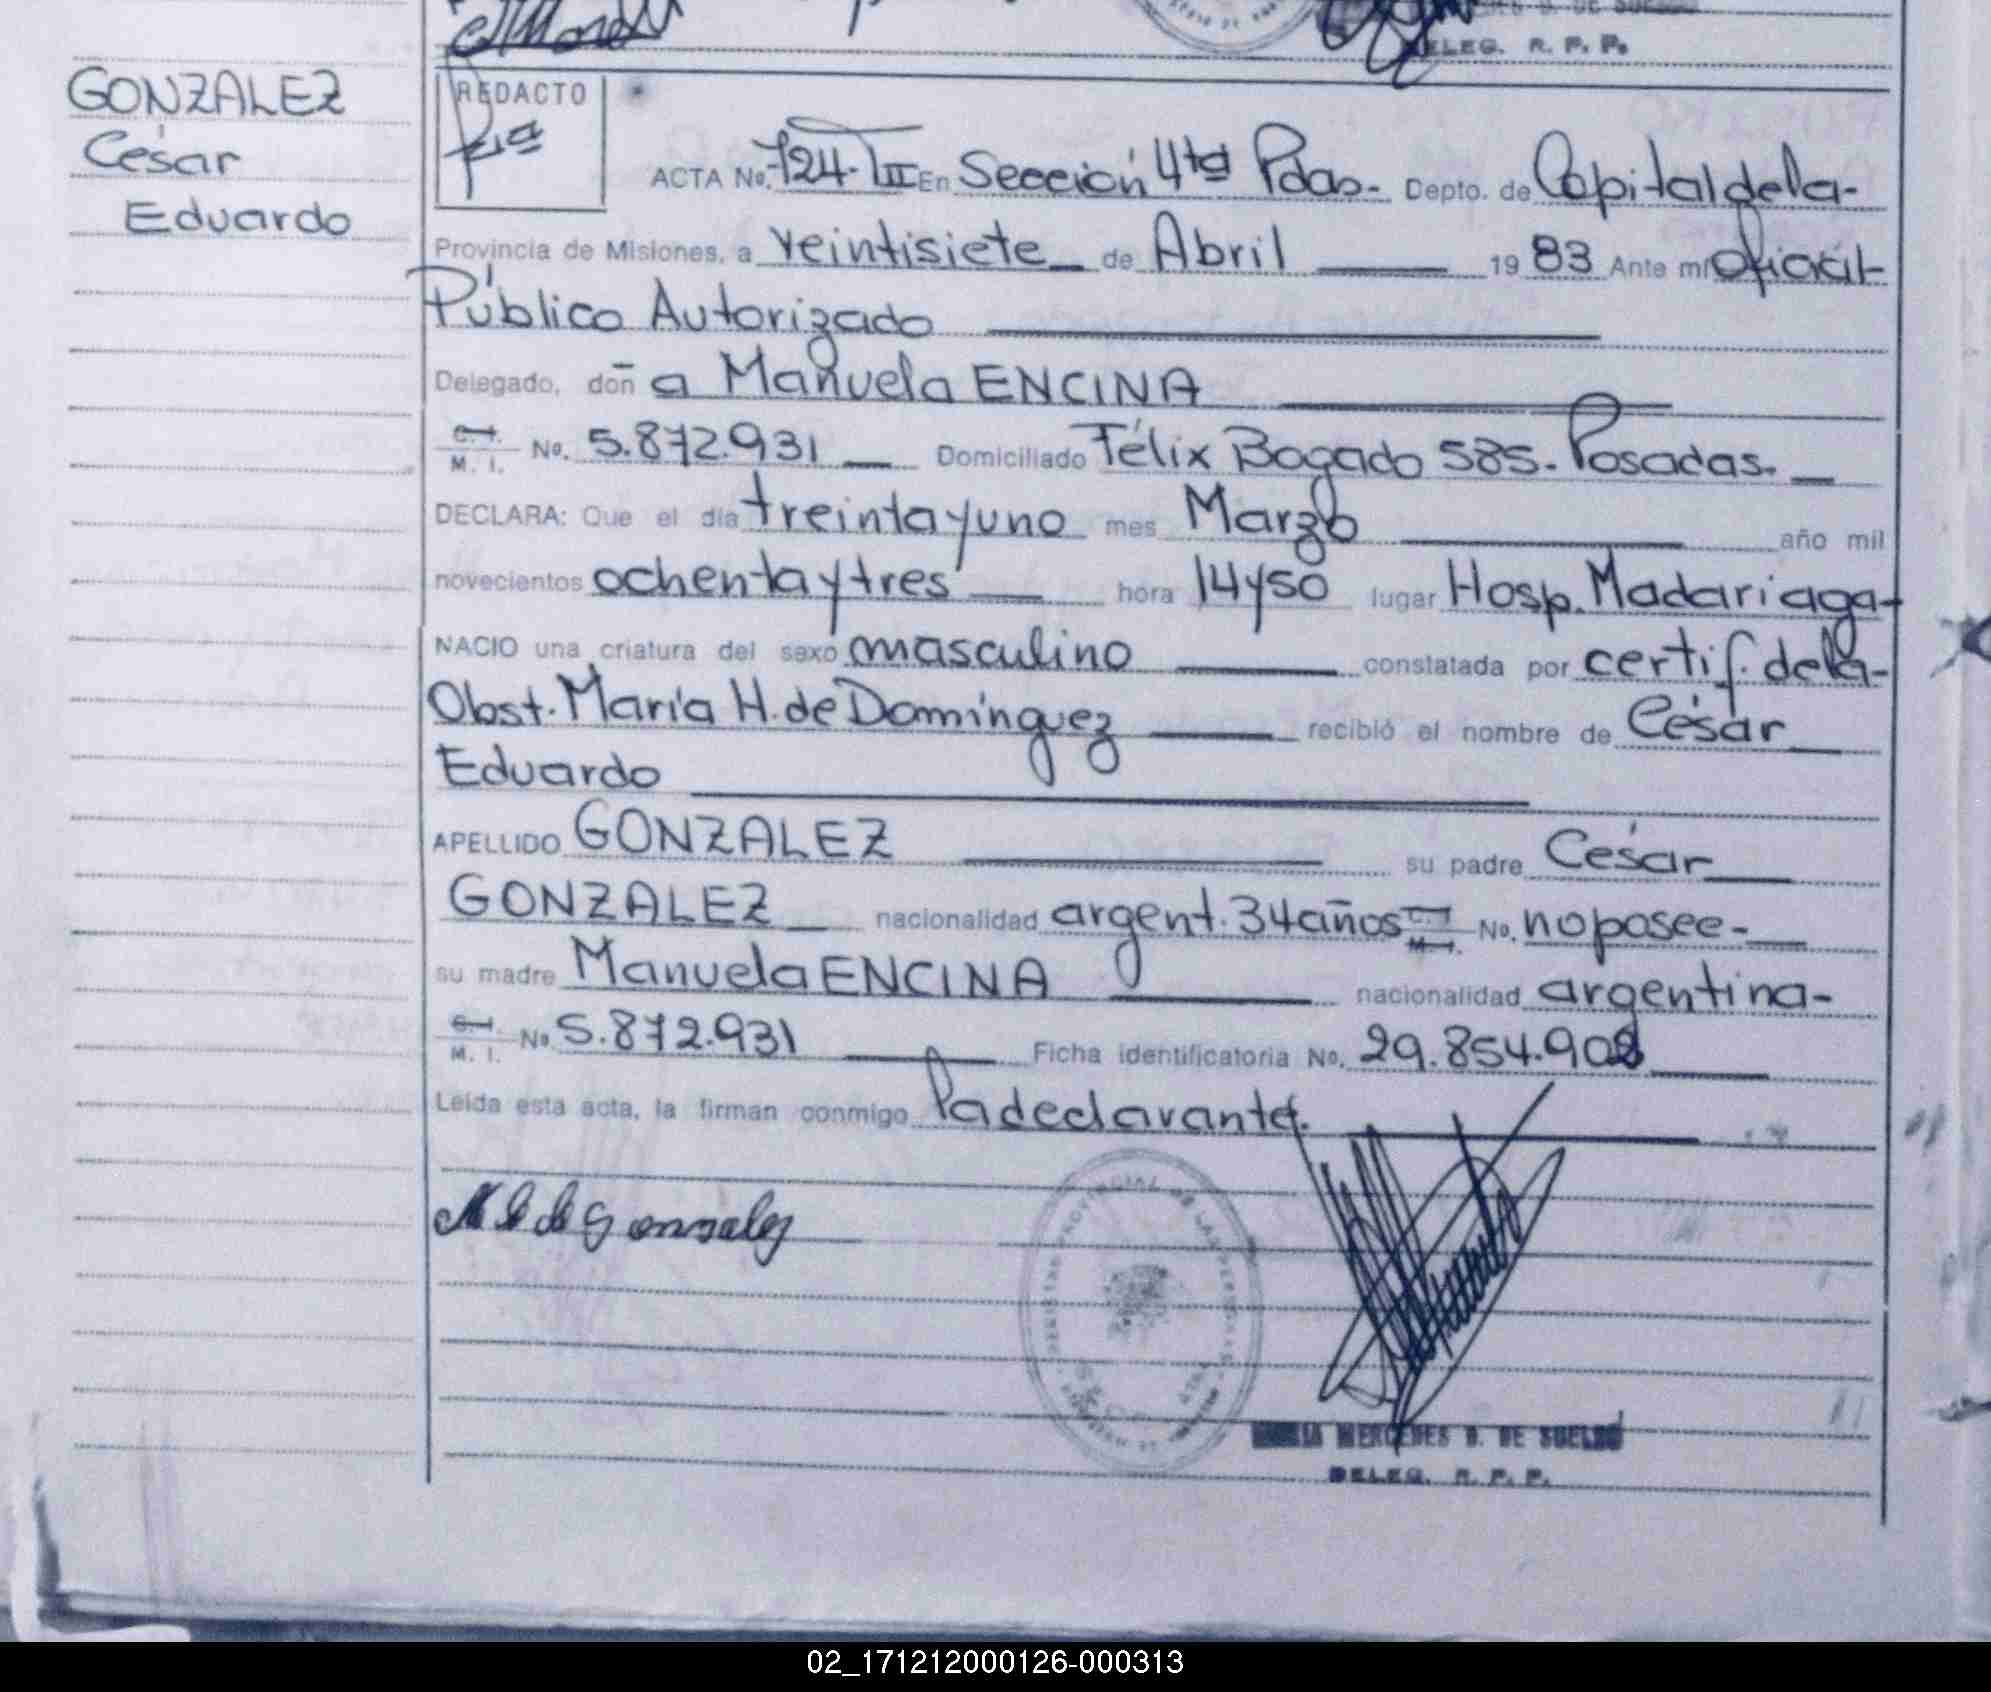 DELEG. R. P. P.
GONZALEZ
César
Eduardo
REDACTO
ACTA No. 724-TII En Sección 4ta Pdas- Depto. de Capital de la-
Provincia de Misiones, a veintisiete de Abril 19 83 Ante mi Oficial
Público Autorizado
Delegado, doñ a Manuela ENCINA
C.I.
M. I. No. 5.872.931 Domiciliado Félix Bogado 585- Posadas.
DECLARA: Que el día treinta y uno mes Marzo año mil
novecientos ochenta y tres hora 14 y 50 lugar Hosp. Madariaga-
NACIO una criatura del sexo masculino constatada por certif. de la-
Obst. María H. de Domínguez recibió el nombre de César
Eduardo
APELLIDO GONZALEZ su padre César
GONZALEZ nacionalidad argent. 34 años C.I. M.I. No. no posee-
su madre Manuela ENCINA nacionalidad argentina-
C.I.
M. I. No 5.872.931 Ficha identificatoria No. 29.854.908
Leida esta acta, la firman conmigo la declarante.
M E de Gonzalez
MARIA MERCEDES D. DE SUELDO
DELEG. R. P. P.
02_171212000126-000313